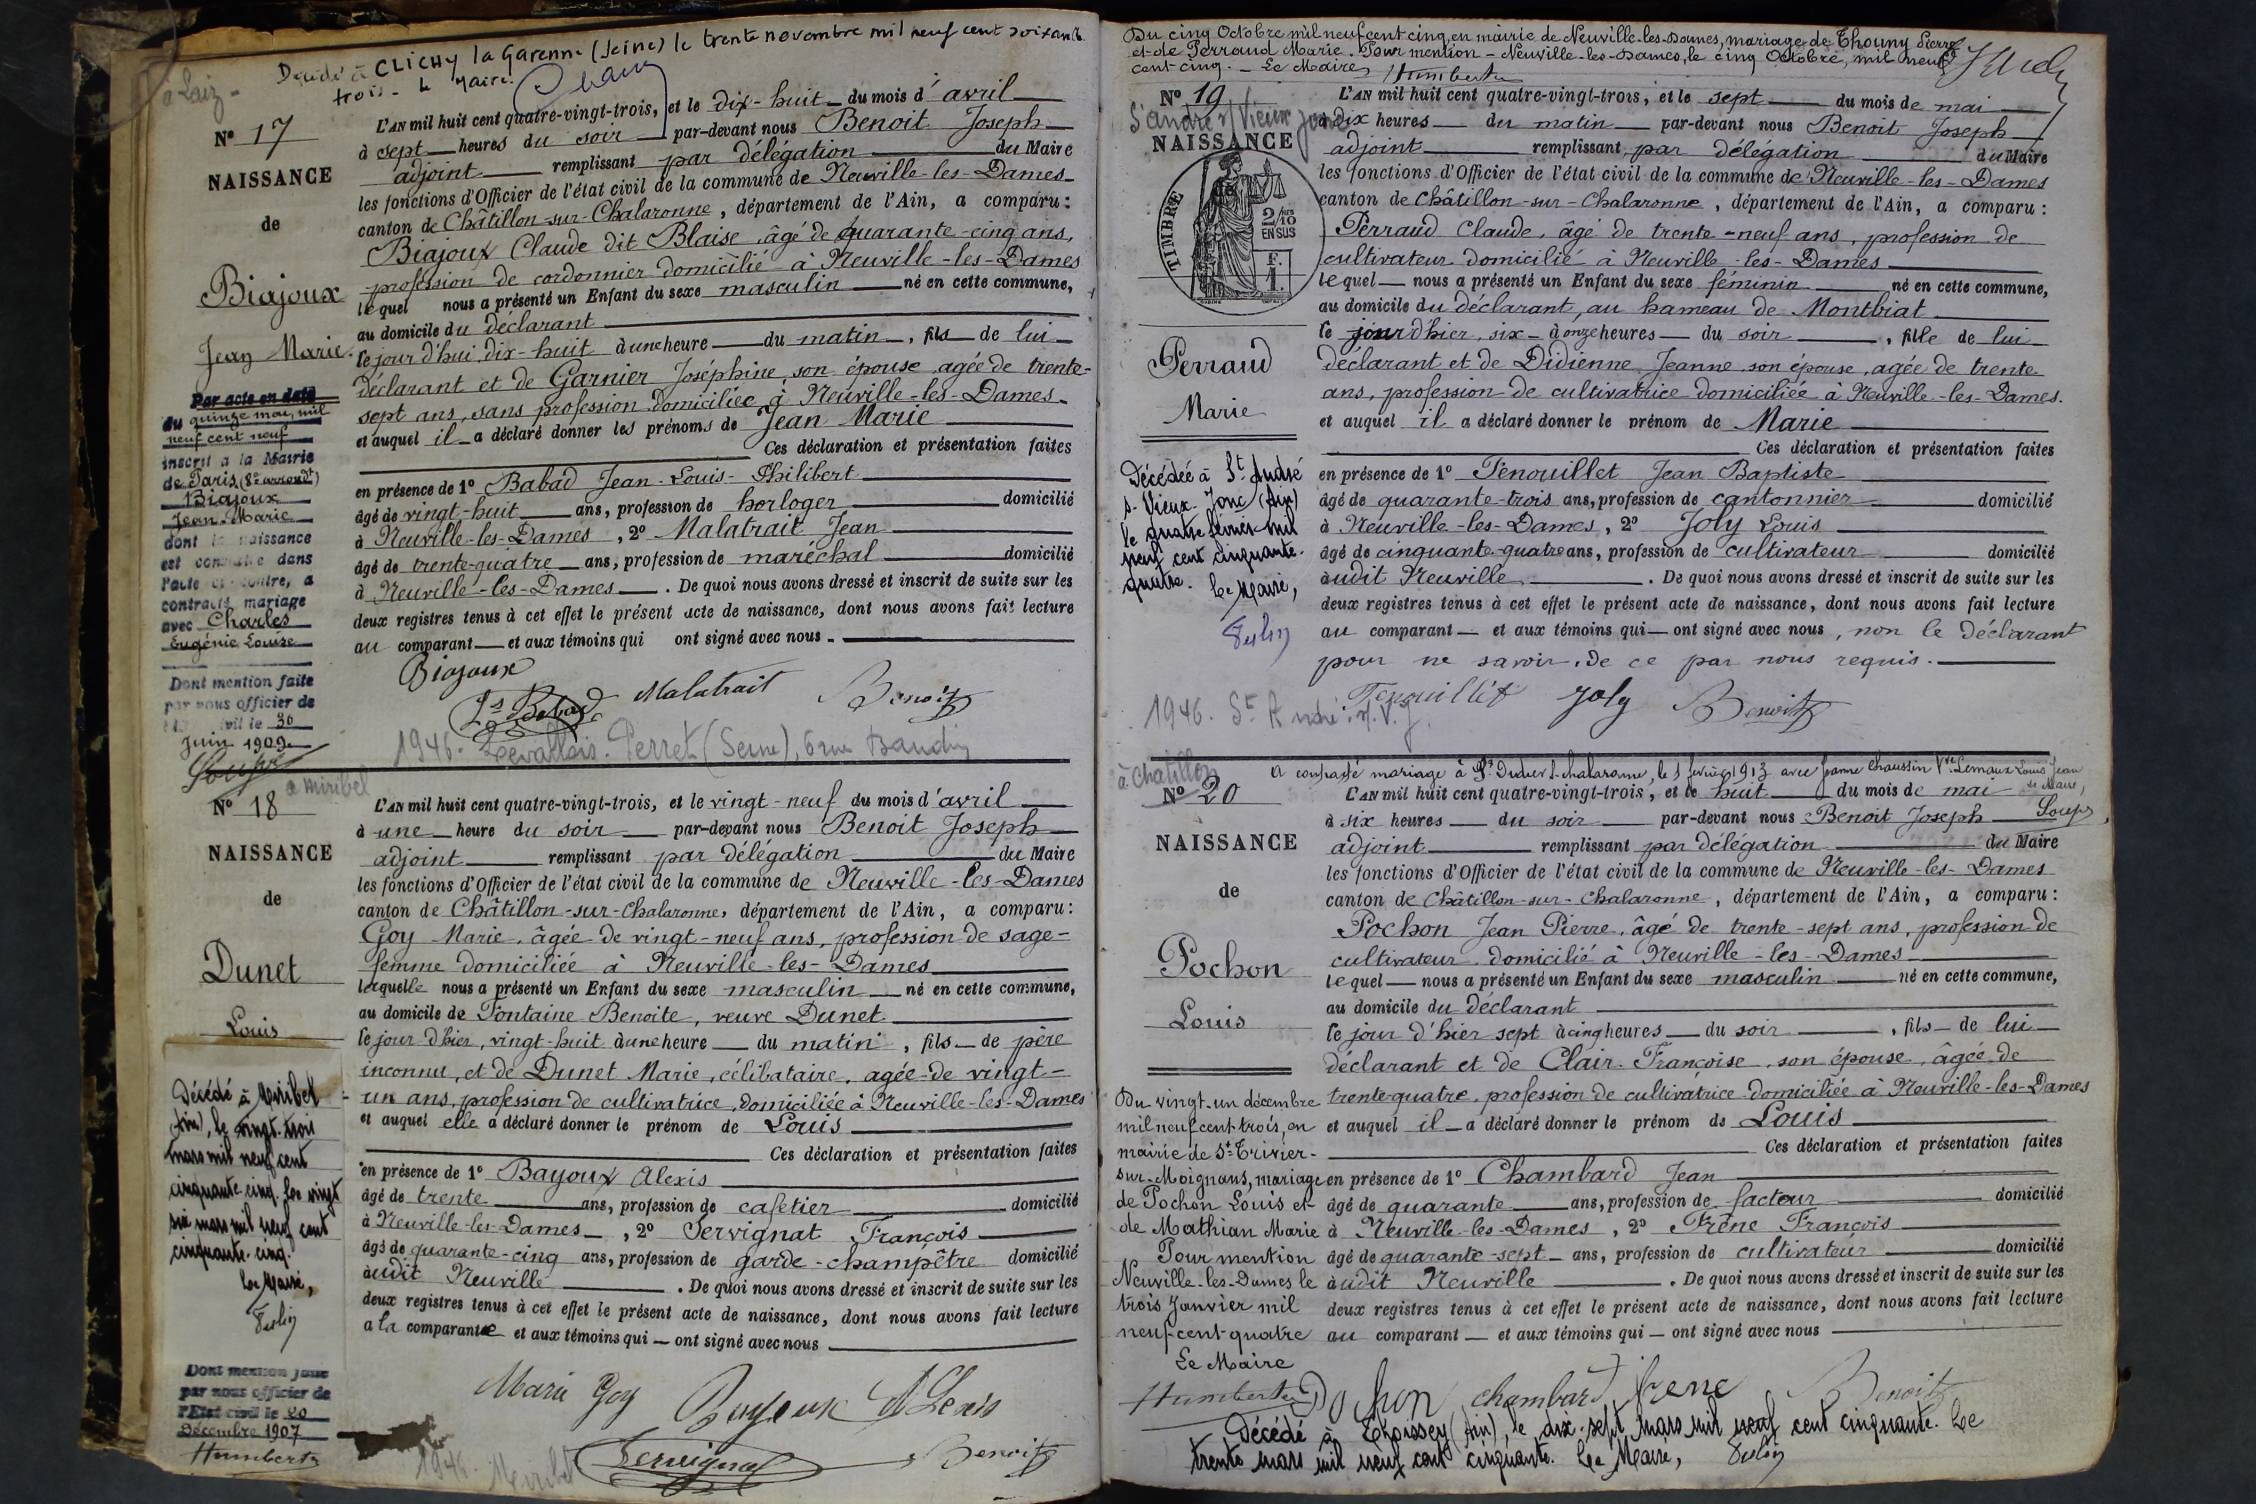 Décédé à CLICHY la Garenne (Seine) le trente novembre mil neuf cent soixante
trois - Le Maire.
à Laiz -
Nº 17
NAISSANCE
de
Biajoux
Jean Marie
Par acte en date
du quinze mai, mil
neuf cent neuf
inscrit à la Mairie
de Paris (8e arrondt)
Biajoux
Jean-Marie
dont la naissance
est constatée dans
l'acte ci-contre, a
contracté mariage
avec Charles
Eugénie Louise
Dont mention faite
par nous officier de
civil le 30
Juin 1909
L'AN mil huit cent quatre-vingt-trois, et le dix-huit du mois d'avril
à sept heures du soir par-devant nous Benoit Joseph
adjoint remplissant par délégation du Maire
les fonctions d'Officier de l'état civil de la commune de Neuville-les-Dames
canton de Châtillon-sur-Chalaronne, département de l'Ain, a comparu :
Biajoux Claude dit Blaise, âgé de quarante-cinq ans,
profession de cordonnier domicilié à Neuville-les-Dames
lequel nous a présenté un Enfant du sexe masculin né en cette commune,
au domicile du déclarant
le jour d'hui dix-huit à une heure du matin, fils de lui
déclarant et de Garnier Joséphine, son épouse, agée de trente-
sept ans, sans profession domiciliée à Neuville-les-Dames
et auquel il a déclaré donner les prénoms de Jean Marie
Ces déclaration et présentation faites
en présence de 1º Babad Jean-Louis-Philibert
âgé de vingt-huit ans, profession de horloger domicilié
à Neuville-les-Dames, 2º Malatrait Jean
âgé de trente-quatre ans, profession de maréchal domicilié
à Neuville-les-Dames. De quoi nous avons dressé et inscrit de suite sur les
deux registres tenus à cet effet le présent acte de naissance, dont nous avons fait lecture
au comparant et aux témoins qui ont signé avec nous.
Biajoux
Malatrait Benoit
1946. Levallois-Perret (Seine), 6 rue Baudin
à Miribel
Nº 18
NAISSANCE
de
Dunet
Louis
Décédé à Miribel
(Ain), le vingt-trois
mars mil neuf cent
cinquante-cinq. Le vingt
six mars mil neuf cent
cinquante-cinq.
Le Maire,
Dont mention faite
par nous officier de
l'Etat civil le 20
Décembre 1907
Humbert
L'AN mil huit cent quatre-vingt-trois, et le vingt-neuf du mois d'avril
à une heure du soir par-devant nous Benoit Joseph
adjoint remplissant par délégation du Maire
les fonctions d'Officier de l'état civil de la commune de Neuville-les-Dames
canton de Châtillon-sur-Chalaronne, département de l'Ain, a comparu :
Goy Marie, âgée de vingt-neuf ans, profession de sage-
femme domiciliée à Neuville-les-Dames
laquelle nous a présenté un Enfant du sexe masculin né en cette commune,
au domicile de Fontaine Benoite, veuve Dunet
le jour d'hier, vingt-huit à une heure du matin, fils de père
inconnu, et de Dunet Marie, célibataire, agée de vingt-
un ans, profession de cultivatrice, domiciliée à Neuville-les-Dames
et auquel elle a déclaré donner le prénom de Louis
Ces déclaration et présentation faites
en présence de 1º Bayoux Alexis
âgé de trente ans, profession de cafetier domicilié
à Neuville-les-Dames, 2º Servignat François
âgé de quarante-cinq ans, profession de garde-champêtre domicilié
audit Neuville. De quoi nous avons dressé et inscrit de suite sur les
deux registres tenus à cet effet le présent acte de naissance, dont nous avons fait lecture
a la comparante et aux témoins qui ont signé avec nous
Marie Goy Bayoux Alexis
1946. Miribel Servignat Benoit
Du cinq Octobre mil neuf cent cinq, en mairie de Neuville-les-Dames, mariage de Thouny Pierre
et de Perraud Marie. Pour mention - Neuville-les-Dames, le cinq Octobre, mil neuf
cent cinq. - Le Maire, Humbert
Nº 19
St André s/ Vieux Jonc
NAISSANCE
TIMBRE
2/10
EN SUS
F.
1.
Perraud
Marie
Décédée à St André
s. Vieux Jonc (Ain)
le quatre février mil
neuf cent cinquante-
quatre. Le Maire,
L'AN mil huit cent quatre-vingt-trois, et le sept du mois de mai
à dix heures du matin par-devant nous Benoit Joseph
adjoint remplissant par délégation du Maire
les fonctions d'Officier de l'état civil de la commune de Neuville-les-Dames
canton de Châtillon-sur-Chalaronne, département de l'Ain, a comparu :
Perraud Claude, âgé de trente-neuf ans, profession de
cultivateur domicilié à Neuville-les-Dames
lequel nous a présenté un Enfant du sexe féminin né en cette commune,
au domicile du déclarant, au hameau de Montbriat
le jour d'hier, six à onze heures du soir, fille de lui
déclarant et de Didienne Jeanne son épouse, agée de trente
ans, profession de cultivatrice domiciliée à Neuville-les-Dames.
et auquel il a déclaré donner le prénom de Marie
Ces déclaration et présentation faites
en présence de 1º Penouillet Jean Baptiste
âgé de quarante-trois ans, profession de cantonnier domicilié
à Neuville-les-Dames, 2º Joly Louis
âgé de cinquante-quatre ans, profession de cultivateur domicilié
audit Neuville. De quoi nous avons dressé et inscrit de suite sur les
deux registres tenus à cet effet le présent acte de naissance, dont nous avons fait lecture
au comparant et aux témoins qui ont signé avec nous, non le déclarant
pour ne savoir, de ce par nous requis.
Penouillet Joly Benoit
1946. St André s. V. J.
à Chatillon
A contracté mariage à St Didier s. Chalaronne, le 1 février 1913 avec Jeanne Chaussin Vve Lernaux Louis Jean
Le Maire,
Nº 20
NAISSANCE
de
Pochon
Louis
Du vingt-un décembre
mil neuf cent trois, en
mairie de St Trivier-
sur-Moignans, mariage
de Pochon Louis et
de Mathian Marie
Pour mention
Neuville-les-Dames le
trois Janvier mil
neuf cent quatre
Le Maire
Humbert
L'AN mil huit cent quatre-vingt-trois, et le huit du mois de mai
à six heures du soir par-devant nous Benoit Joseph
adjoint remplissant par délégation du Maire
les fonctions d'Officier de l'état civil de la commune de Neuville-les-Dames
canton de Châtillon-sur-Chalaronne, département de l'Ain, a comparu :
Pochon Jean Pierre, âgé de trente-sept ans, profession de
cultivateur domicilié à Neuville-les-Dames
lequel nous a présenté un Enfant du sexe masculin né en cette commune,
au domicile du déclarant
le jour d'hier sept à cinq heures du soir, fils de lui
déclarant et de Clair Françoise, son épouse, âgée de
trente-quatre, profession de cultivatrice domiciliée à Neuville-les-Dames
et auquel il a déclaré donner le prénom de Louis
Ces déclaration et présentation faites
en présence de 1º Chambard Jean
âgé de quarante ans, profession de facteur domicilié
à Neuville-les-Dames, 2º Frêne François
âgé de quarante-sept ans, profession de cultivateur domicilié
audit Neuville. De quoi nous avons dressé et inscrit de suite sur les
deux registres tenus à cet effet le présent acte de naissance, dont nous avons fait lecture
au comparant et aux témoins qui ont signé avec nous
Pochon Chambard frene Benoit
Décédé à Thoissey (Ain), le dix-sept mars mil neuf cent cinquante. Le
trente mars mil neuf cent cinquante. Le Maire,